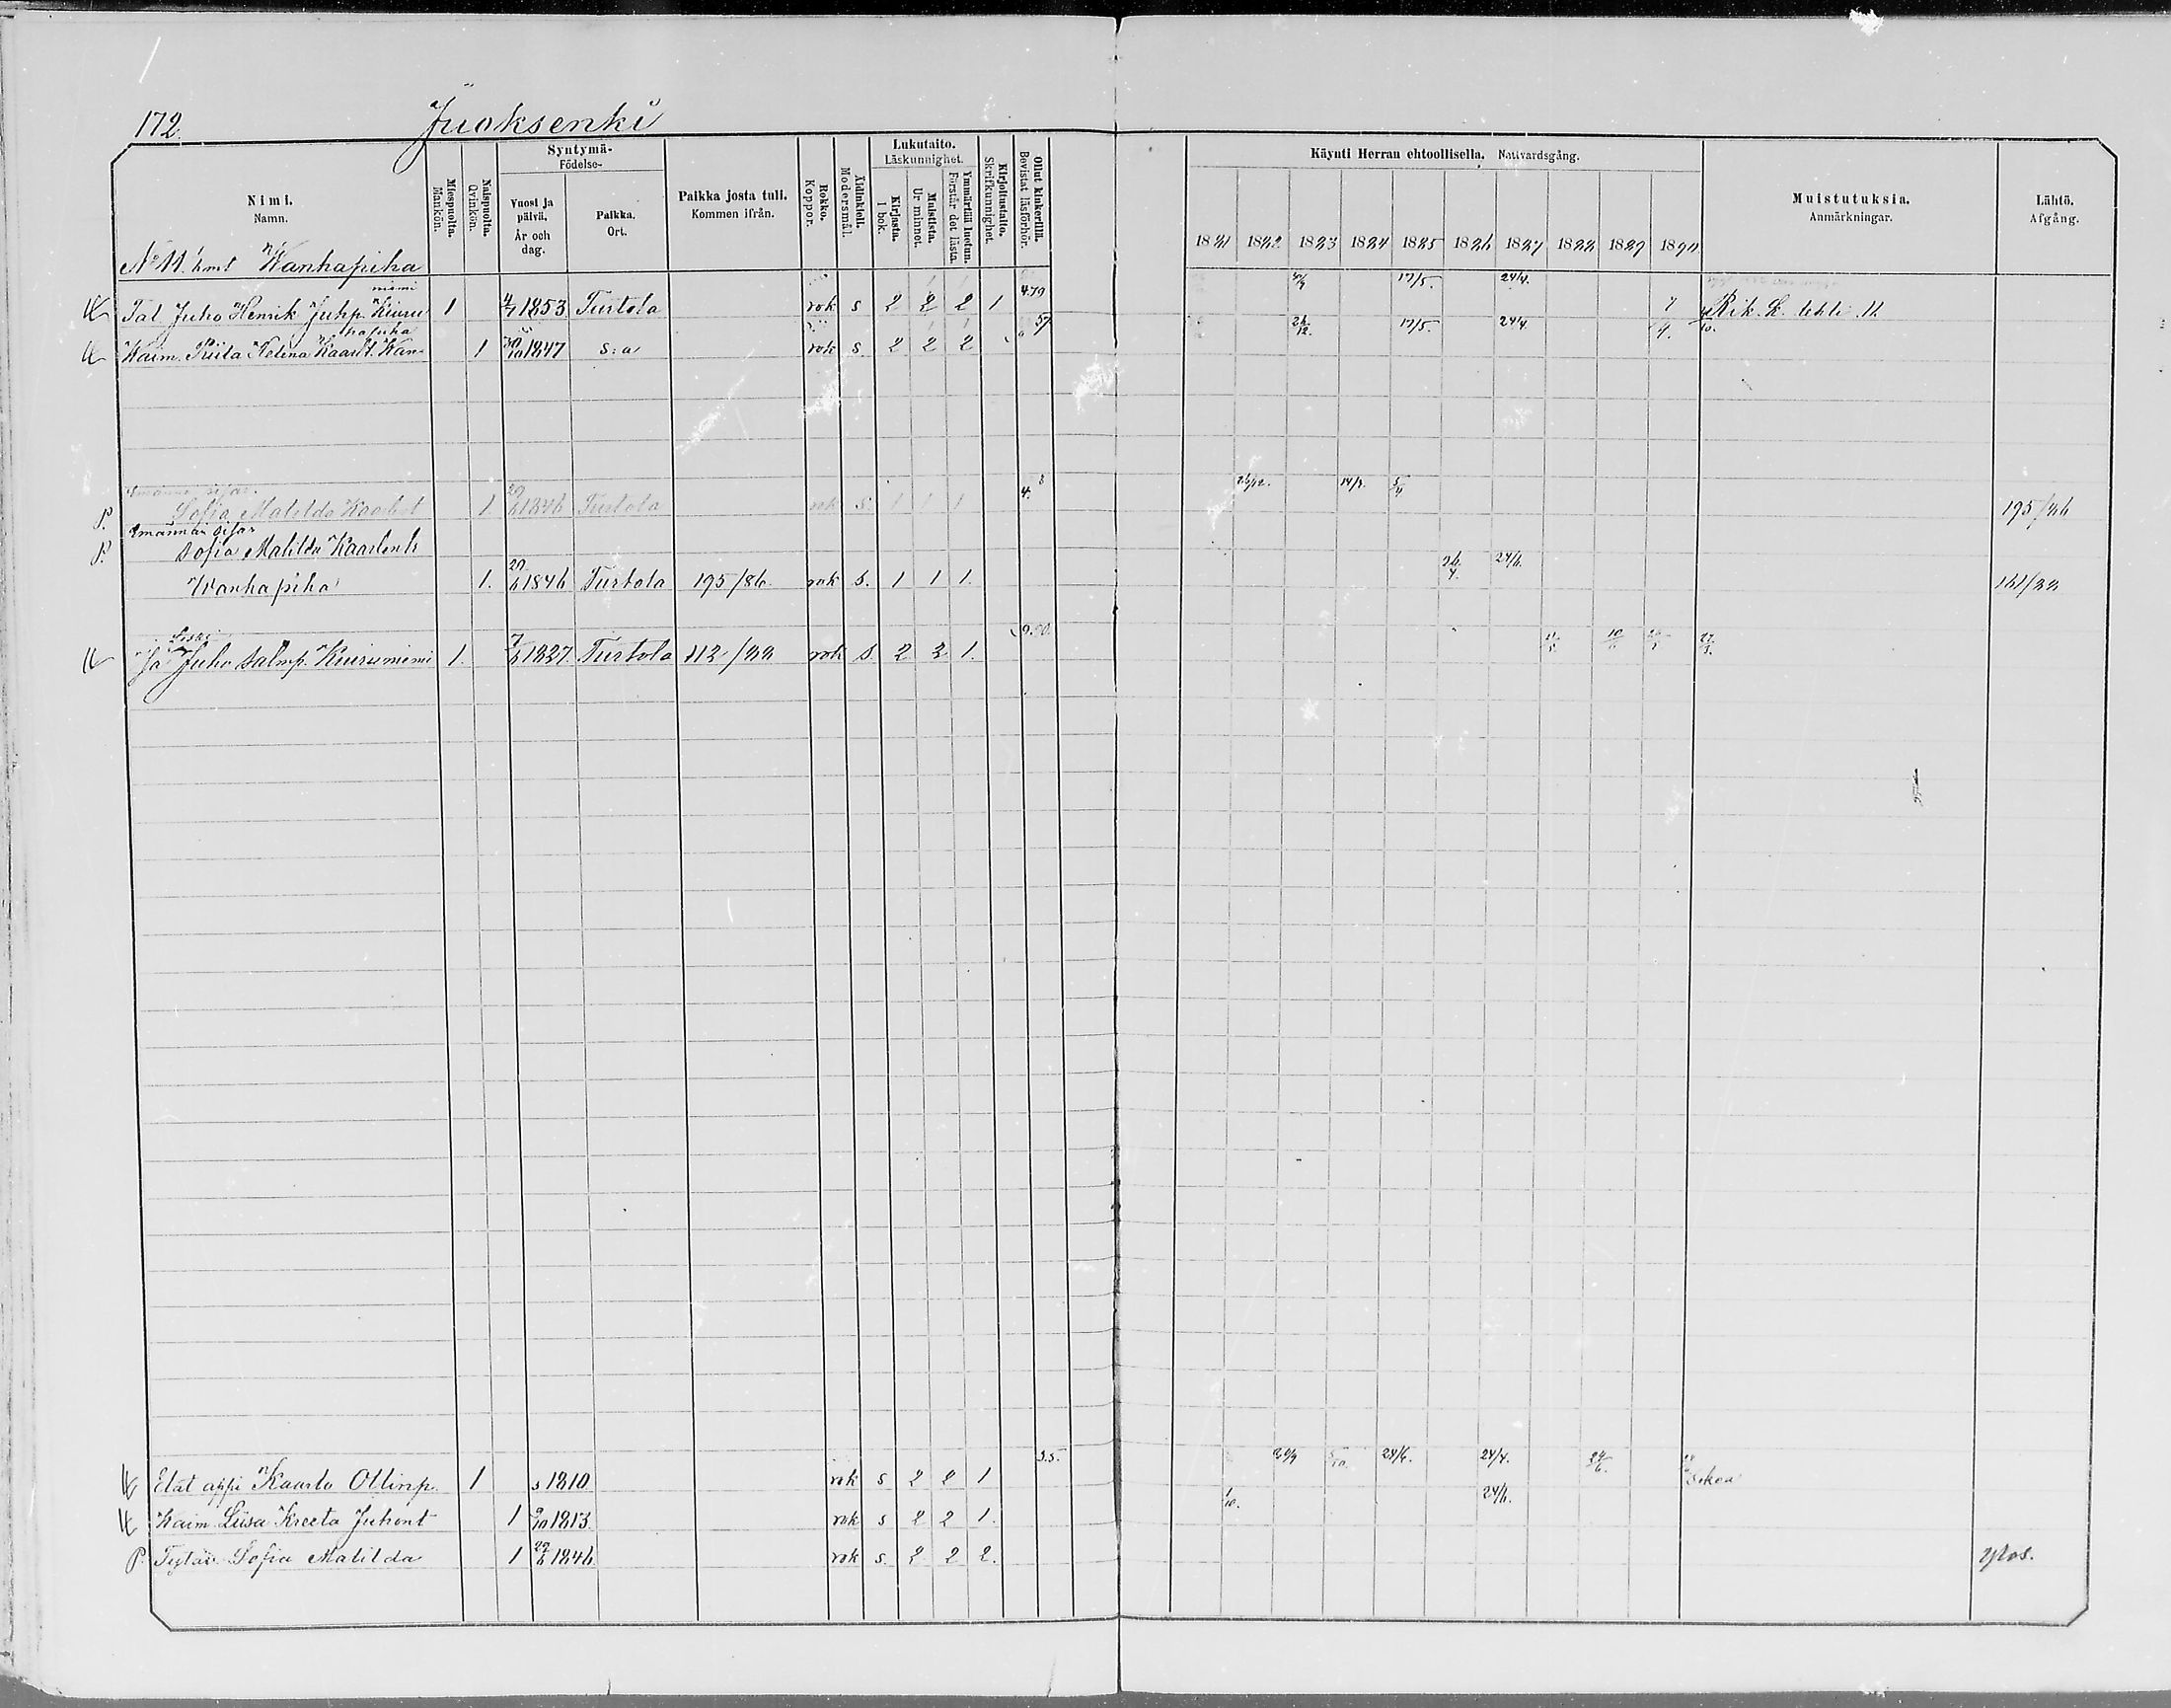 172. Juoksenki
Nimi. Namn.
Miespuolia. Mankön.
Naispuolia. Qvinkön.
Syntymä- Födelse-
Vuosi ja päivä. År och dag.
Paikka. Ort.
Paikka josta tuli. Kommen ifrån.
Rokko. Koppor.
Äidinkieli. Modersmål.
Lukutaito. Läskunnighet.
Kirjasta. I bok.
Muistista. Ur minnet.
Ymmärtää luetun. Förstår det lästa.
Kirjoitustaito. Skrifkunnighet.
Ollut kinkerillä. Bevistat läsförhör.
Käynti Herran ehtoollisella. Nattvardsgång.
1881 1882 1883 1884 1885 1886 1887 1888 1889 1890
Muistutuksia. Anmärkningar.
Lähtö. Afgång.
No 11. Wanhapiha
niemi
Tal Juho Henrik Juhp. Kiuru 1 4/7 1853 Turtola rok s 2 2 2 1 4.79 17/5. 24/4. Rik. L. lehti 11.
hapiha
Waim. Kaarlt. Wan- 1 30/10 1847 s:a rok s. 2 2 2 57 26/12. 17/5. 24/4.
P. Sofia Matilda Kaarlent 1 29/6 1846 Turtola rok s. 1 1 1 4. 8 26/12. 195/86
Emännän sisar
P. Sofia Matilda Kaarlent
Wanhapiha 1. 29/6 1846 Turtola 195/86 rok s. 1 1 1. 26/4. 24/6. 161/88
Juho Salmp. Kiuruniemi 1. 7/6 1827. Turtola 112/88 rok s. 2 2 1. 9.90.
Elät appi Kaarlo Ollinp. 1 1810. rok s 2 2 1 3.5. 24/6. 24/4. 24/6. Sokea
Waim. Liisa Kreeta Juhont 1 9/10 1813. rok s 2 2 1. 1/10. 24/6.
P. Tytär Sofia Matilda 1 29/6 1846. rok s. 2 2 2. ylös.